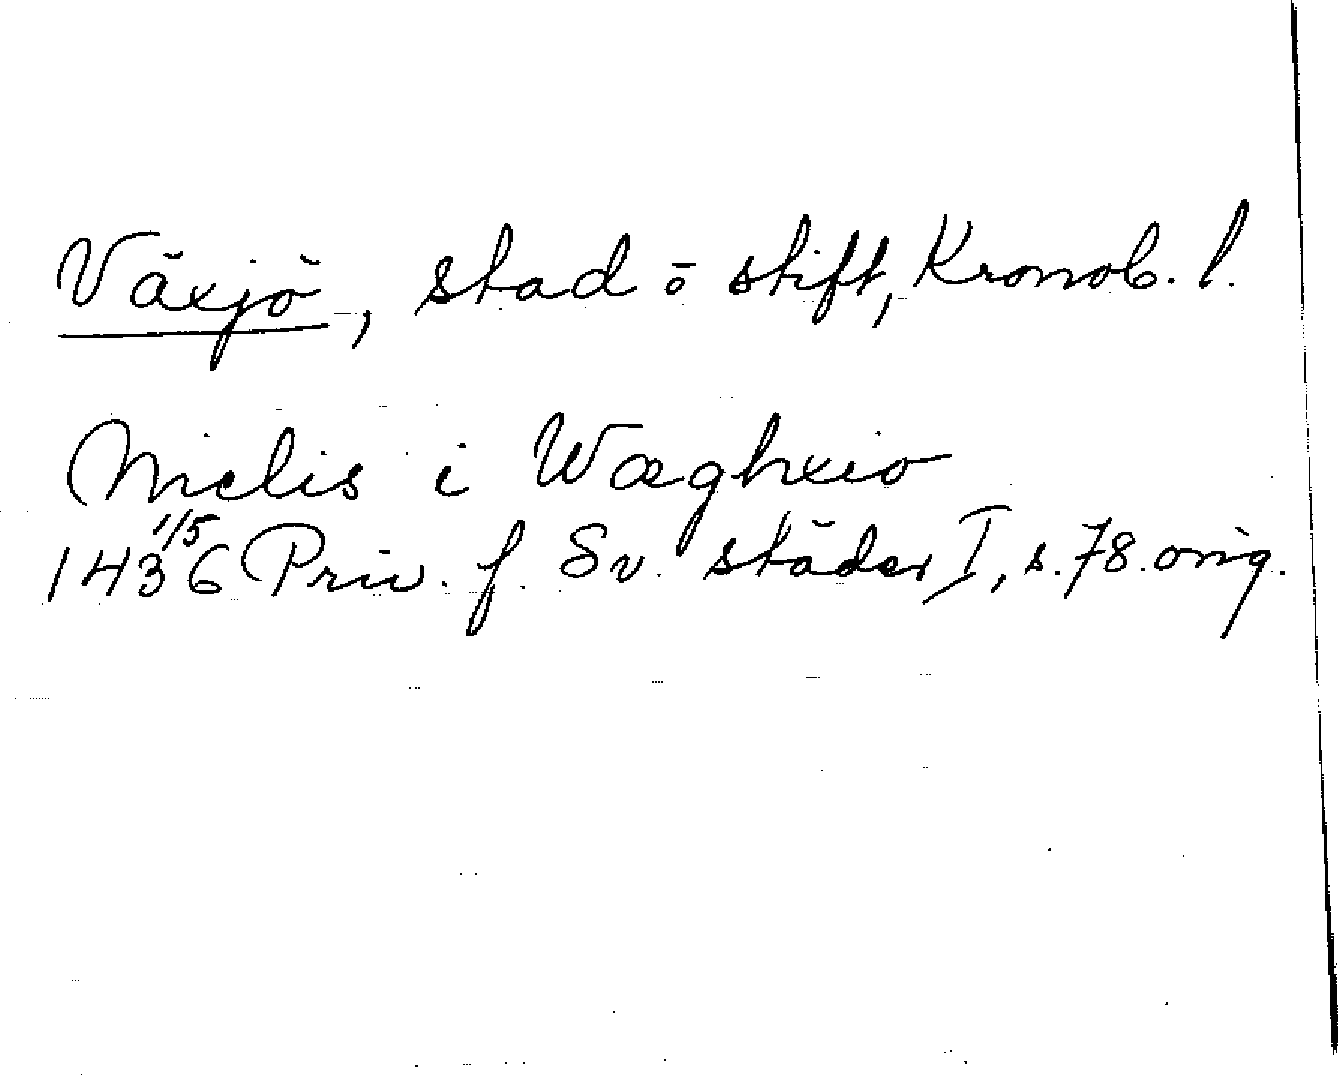 Växjö, stad o stift, Kronob. l.
Niclis i Wæghxio
1436 1/5 Priv. f. Sv. städer I, s. 78. orig.